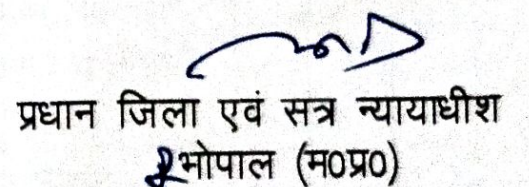 प्रधान जिला एवं सत्र न्यायाधीश
भोपाल (म0प्र0)